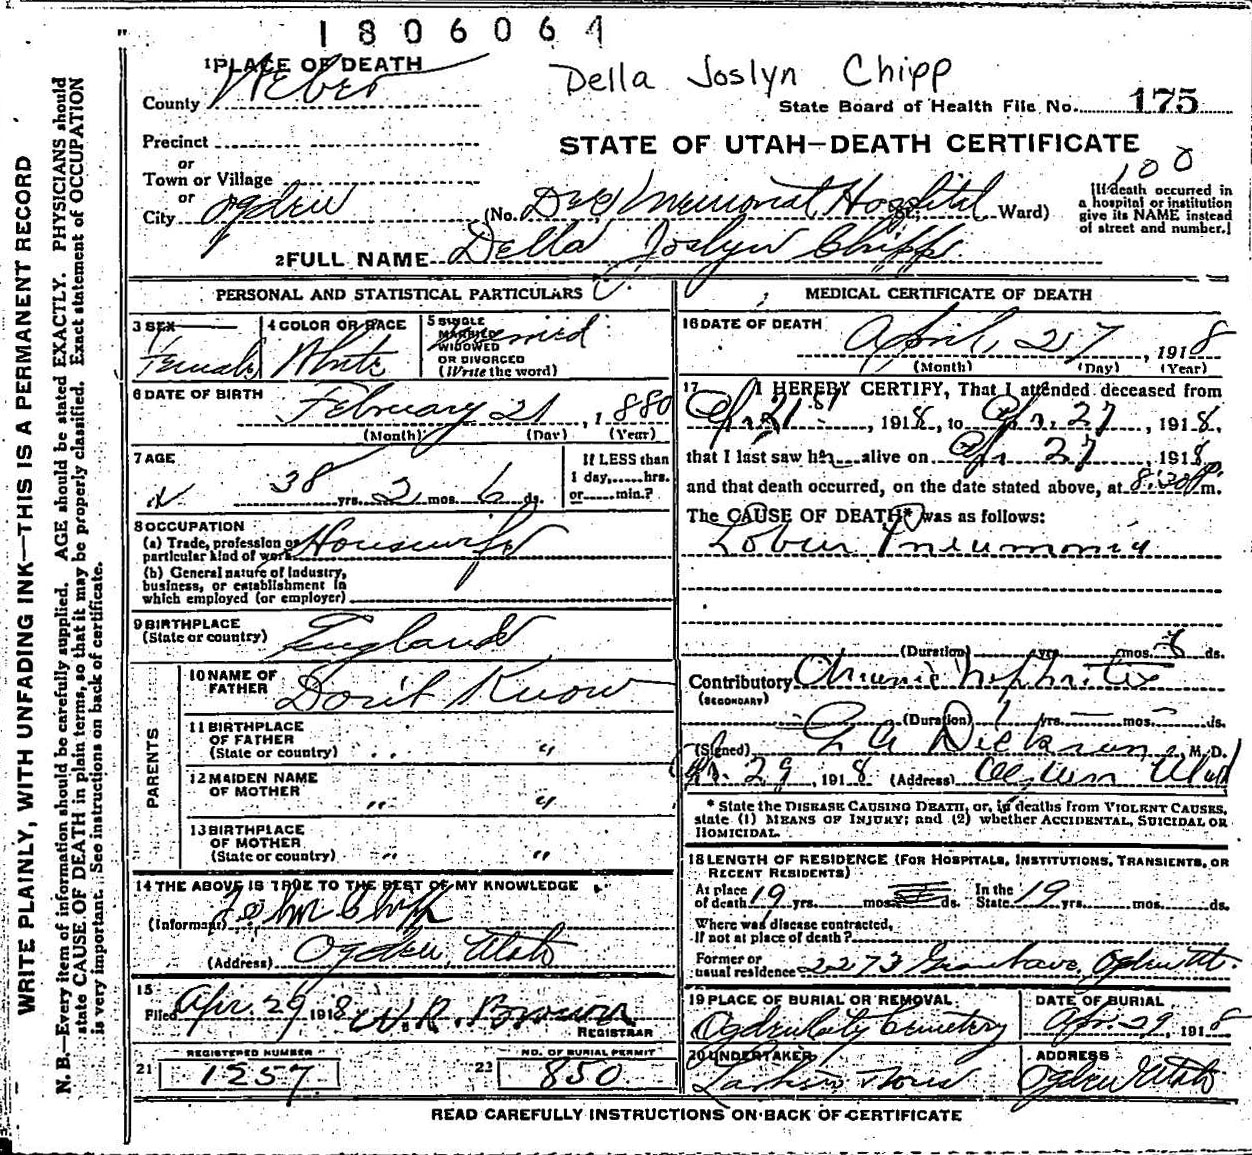 1806064
1 PLACE OF DEATH
Della Joslyn Chipp
County Weber
State Board of Health File No. 175
Precinct
STATE OF UTAH—DEATH CERTIFICATE
or
Town or Village
100
or
City Ogden (No. Dee Memorial Hospital St. Ward)
[If death occurred in
a hospital or institution
give its NAME instead
of street and number.]
2 FULL NAME Della Joslyn Chipp
PERSONAL AND STATISTICAL PARTICULARS
3 SEX
Female
4 COLOR OR RACE
White
5 SINGLE
MARRIED
WIDOWED
OR DIVORCED
(Write the word)
Married
6 DATE OF BIRTH
February 21, 1880
(Month) (Day) (Year)
7 AGE
38 yrs. 2 mos. 6 ds.
If LESS than
1 day,......hrs.
or......min.?
8 OCCUPATION
(a) Trade, profession or
particular kind of work Housewife
(b) General nature of Industry,
business, or establishment in
which employed (or employer)
9 BIRTHPLACE
(State or country) England
PARENTS
10 NAME OF
FATHER Don't Know
11 BIRTHPLACE
OF FATHER
(State or country) " "
12 MAIDEN NAME
OF MOTHER " "
13 BIRTHPLACE
OF MOTHER
(State or country) " "
14 THE ABOVE IS TRUE TO THE BEST OF MY KNOWLEDGE
(Informant) John Chipp
(Address) Ogden, Utah
15
Filed Apr. 29 1918 W. R. Brown
REGISTRAR
21 REGISTERED NUMBER
1257
22 NO. OF BURIAL PERMIT
850
MEDICAL CERTIFICATE OF DEATH
16 DATE OF DEATH
April, 27, 1918
(Month) (Day) (Year)
17 I HEREBY CERTIFY, That I attended deceased from
Apr. 21st, 1918, to Apr. 27, 1918,
that I last saw her alive on Apr 27 1918
and that death occurred, on the date stated above, at 8:30 P m.
The CAUSE OF DEATH* was as follows:
Lobar Pneumonia
(Duration) yrs. mos. 8 ds.
Contributory Chronic Nephritis
(SECONDARY)
(Duration) 1 yrs. — mos. — ds.
(Signed) M. D.
Apr. 29, 1918 (Address) Ogden Utah
* State the DISEASE CAUSING DEATH, or, in deaths from VIOLENT CAUSES,
state (1) MEANS OF INJURY; and (2) whether ACCIDENTAL, SUICIDAL OR
HOMICIDAL.
18 LENGTH OF RESIDENCE (FOR HOSPITALS, INSTITUTIONS, TRANSIENTS, OR
RECENT RESIDENTS)
At place
of death 19 yrs. mos. ds.
In the
State 19 yrs. mos. ds.
Where was disease contracted,
If not at place of death?
Former or
usual residence 2273 Grant ave, Ogden Ut.
19 PLACE OF BURIAL OR REMOVAL
Ogden City Cemetery
DATE OF BURIAL
Apr. 29, 1918
20 UNDERTAKER
Larkin & Sons
ADDRESS
Ogden Utah
READ CAREFULLY INSTRUCTIONS ON BACK OF CERTIFICATE
WRITE PLAINLY, WITH UNFADING INK—THIS IS A PERMANENT RECORD
N. B.—Every item of information should be carefully supplied. AGE should be stated EXACTLY. PHYSICIANS should
state CAUSE OF DEATH in plain terms, so that it may be properly classified. Exact statement of OCCUPATION
is very important. See instructions on back of certificate.